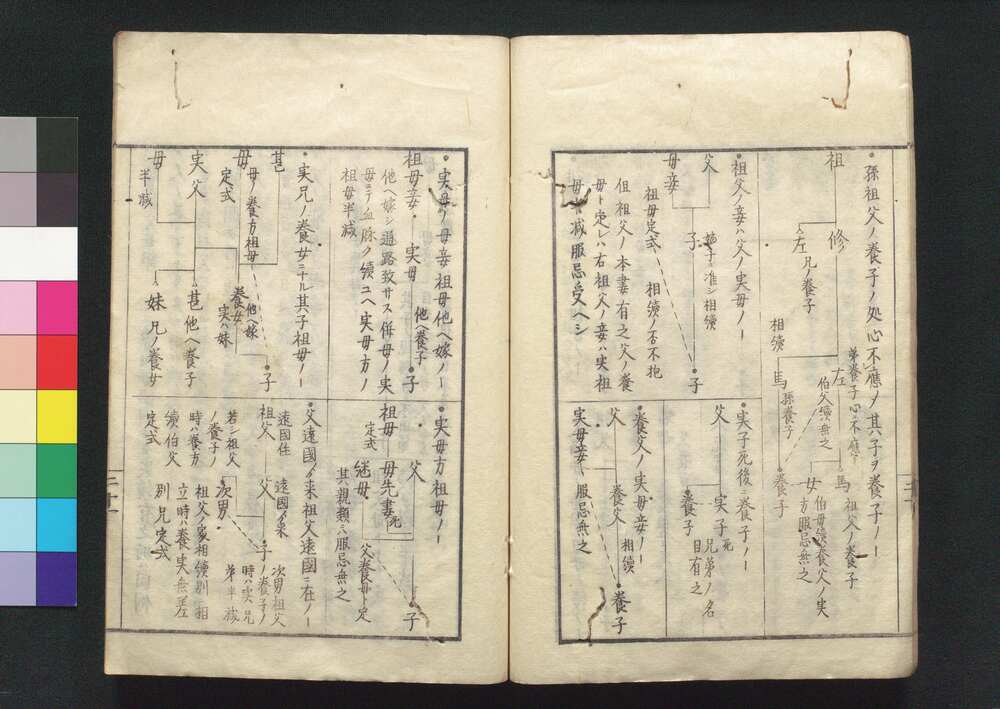 ・孫祖父ノ養子ノ処心不應ヲ其子ヲ養子ノー
祖
修
左
兄ノ養子
左
弟養子心不應
伯父續無之
馬
祖父ノ養子
相續
馬
孫養子
養子
女
伯母續養父ノ実
方服忌無之
・祖父ノ妾ハ父ノ実母ノー
父
母妾
子
嫡子ニ准シ相續
子
祖母定式
相續ノ否不抱
但祖父ノ本妻有之父ノ養
母ト定レハ右祖父ノ妾ハ実祖
母半减服忌受ヘシ
・実子死後ニ養子ノー
父
実子
死
養子
兄弟ノ名
目有之
・養父ノ実母妾ノー
父
養父
相續
養子
実母妾
服忌無之
・実母ノ母妾祖母他ヘ嫁ノー
祖母妾
実母
他ヘ養子
子
他ヘ嫁シ通路致サス併母ノ実
母ニテ血脉ク續ユヘ実母方ノ
祖母半减
・実兄ノ養女ニナル其子祖母ノー
甚
母
母ノ養方祖母
定式
養女
他ヘ嫁
実ハ妹
子
実父
母
半减
甚他ヘ養子
妹
兄ノ養女
・実母方祖母ノー
父
祖母
定式
母先妻
死
継母
父養母ト定
子
其親類ニハ服忌無之
・父遠國ゟ来祖父遠國ニ在ノー
遠國住
祖父
父
遠國ゟ来
子
次男
次男祖父
ノ養子ノ
時ハ実兄
弟半减
若シ祖父
ノ養子ノ
時ハ養方
續伯父
定式
祖父ノ家相續別相
立時ハ養実無差
別兄定式